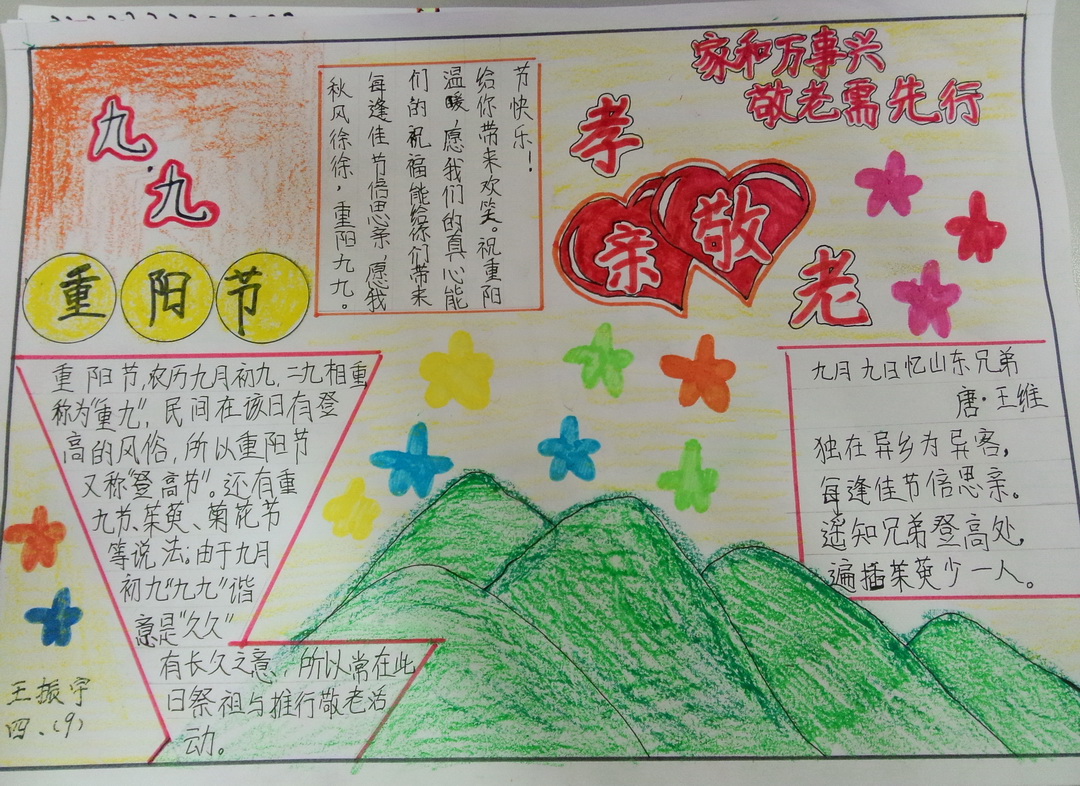 九.九
重阳节
秋风徐徐，重阳九九。
每逢佳节倍思亲，愿我
们的祝福能给你们带来
温暖，愿我们的真心能
给你带来欢笑。祝重阳
节快乐！
家和万事兴
敬老需先行
孝
亲
敬
老
重阳节，农历九月初九，二九相重
称为“重九”，民间在该日有登
高的风俗，所以重阳节
又称“登高节”。还有重
九节、茱萸、菊花节
等说法。由于九月
初九“九九”谐
意是“久久”
有长久之意，所以常在此
日祭祖与推行敬老活
动。
九月九日忆山东兄弟
唐·王维
独在异乡为异客，
每逢佳节倍思亲。
遥知兄弟登高处，
遍插茱萸少一人。
王振宇
四、（9）